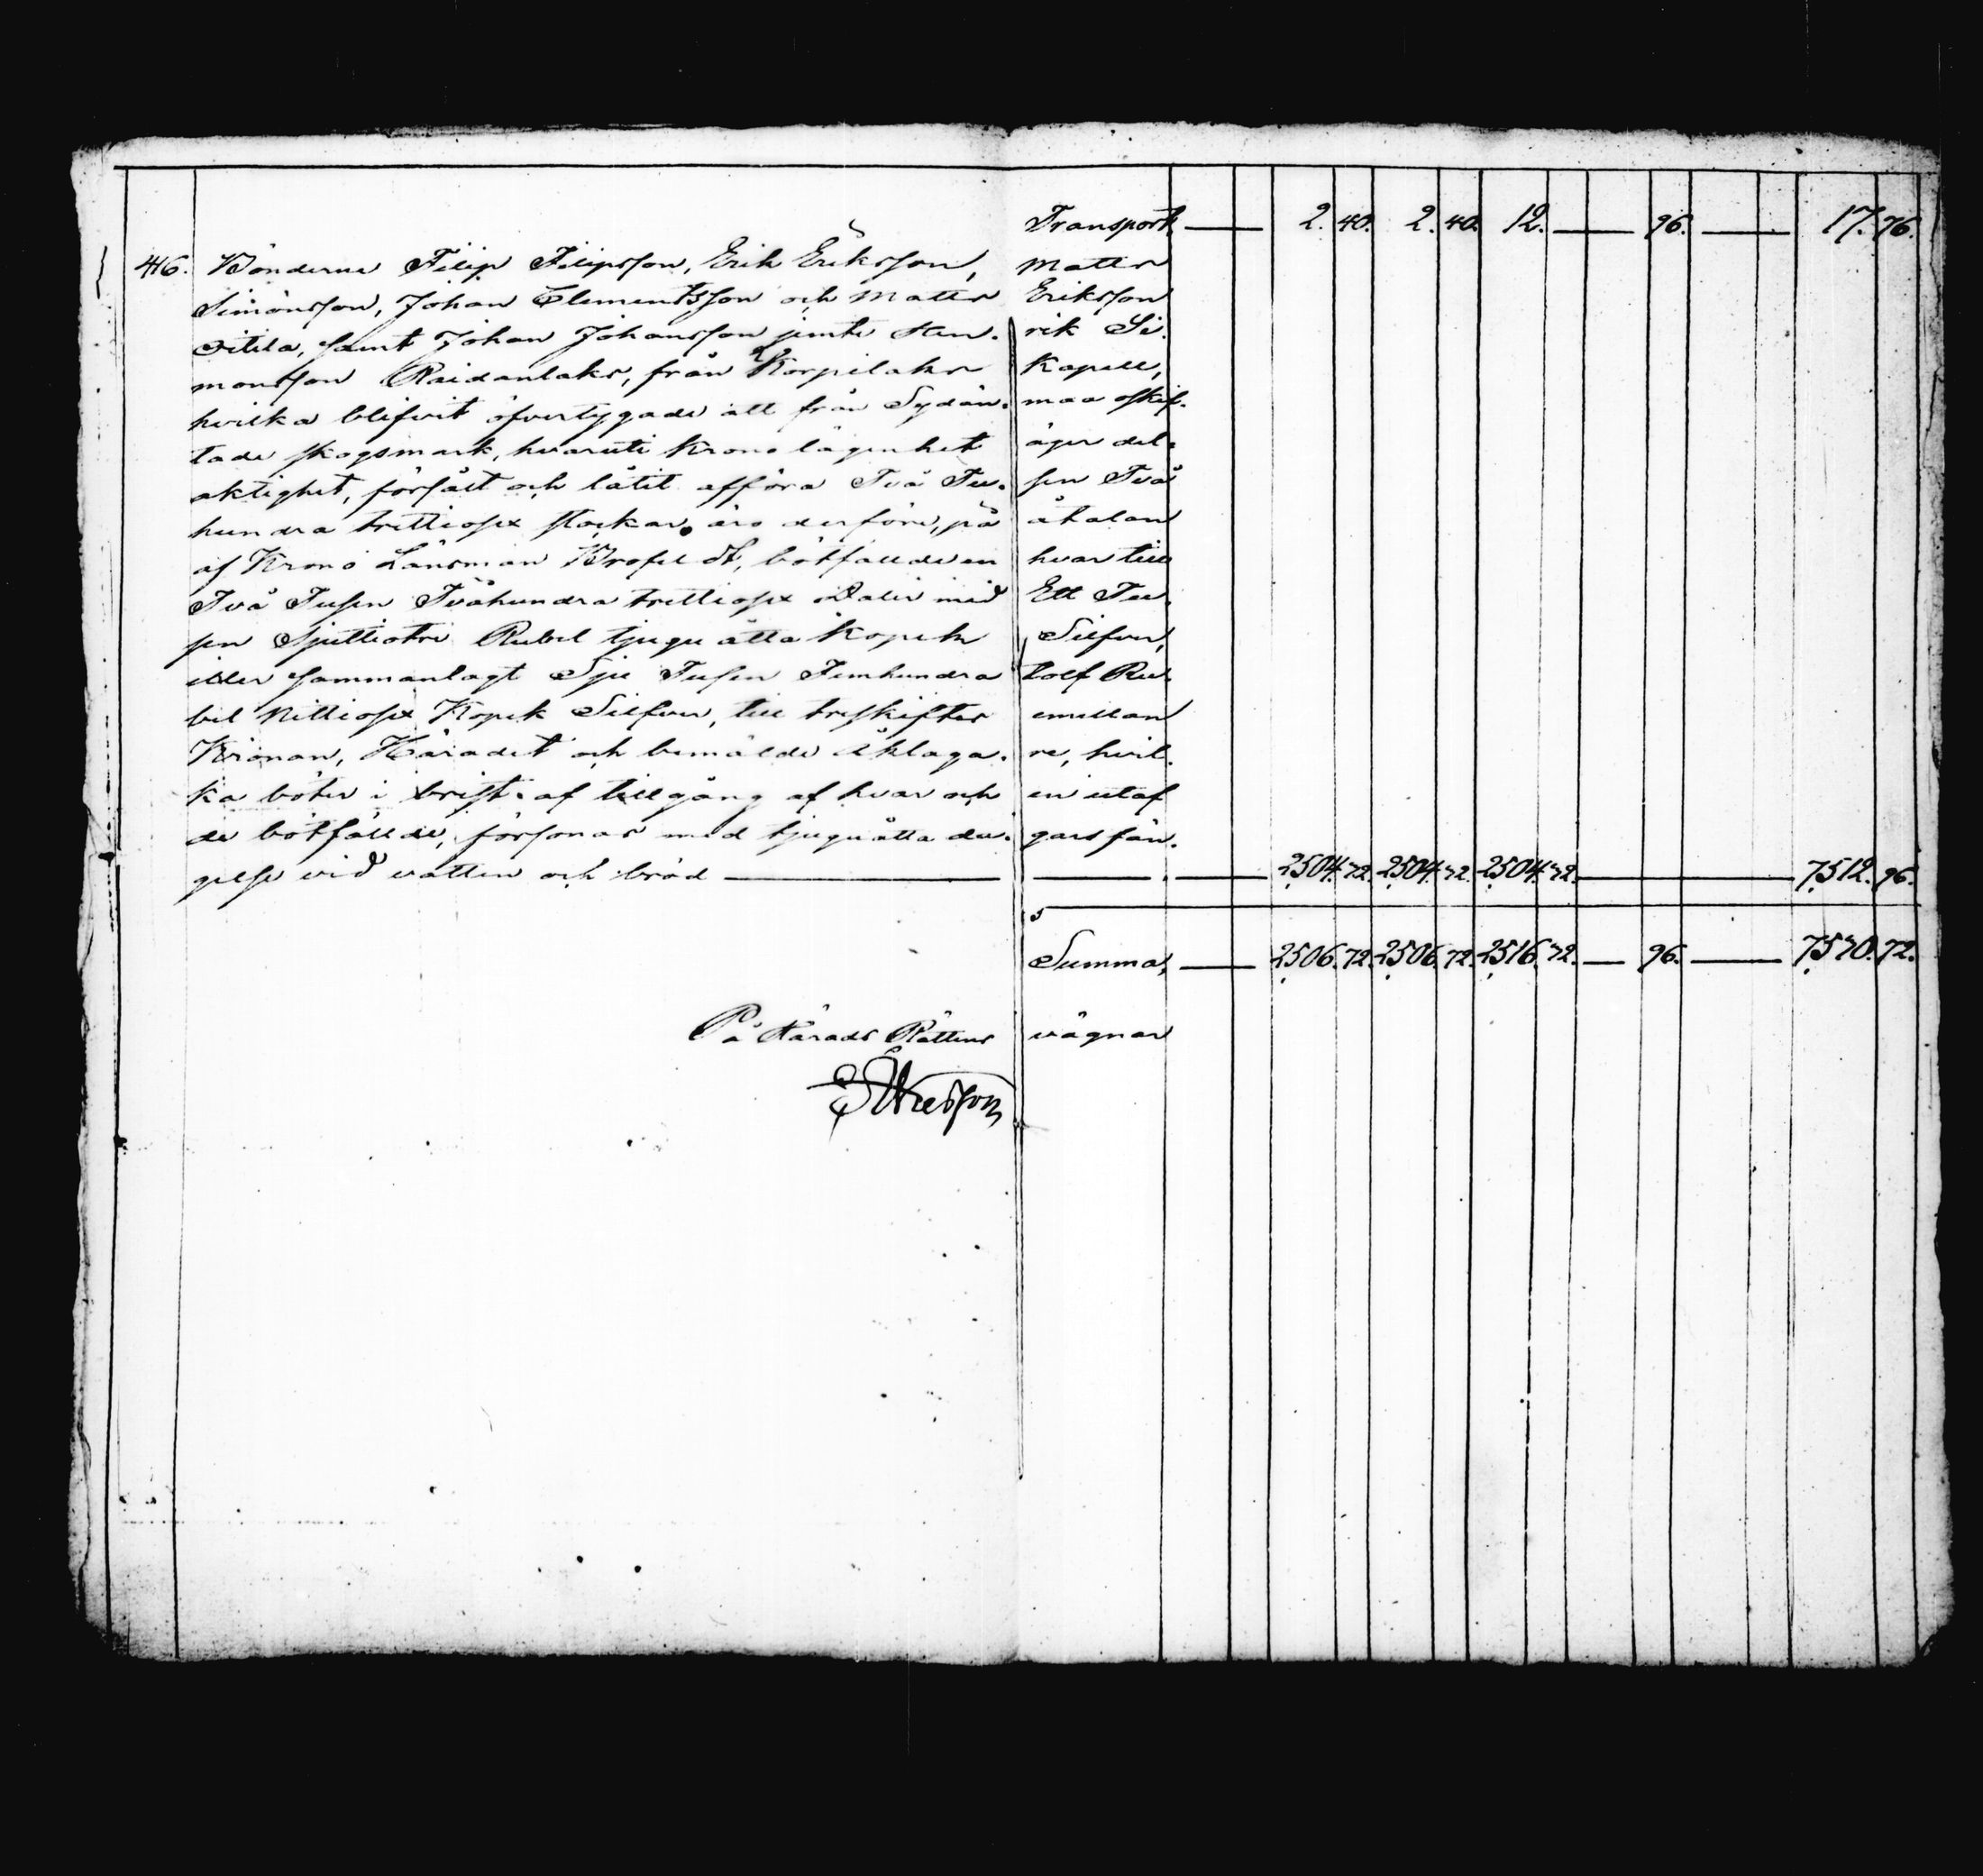 Transport, 2. 40. 2. 40. 12. 96. 17. 76.
46. Bönderne Filip Filipsson, Erik Eriksson, Matts
Simonsson, Johan Clementsson och Matts Eriksson
Oitila, samt Johan Johansson jemte Hen- rik Si-
monsson Raidanlaks, från Korpilaks Kapell,
hvilka blifvit öfvertygade att från Sydän- maa oskif-
tade skogsmark, hvaruti Krono lägenhet äger del-
aktighet, försålt och låtit afföra Två Tu- sen Två
hundra trettiosex stockar, äro derföre, på åtalan
af Krono Länsman Brofeldt, bötfällde en hvar till
Två Tusen Tvåhundra trettiosex Daler med Ett Tu-
sen Sjuttiotre Rubel tjuguåtta Kopek Silfver,
eller sammanlagt Sju Tusen Femhundra tolf Ru-
bel Nittiosex Kopek Silfver, till treskiftes emellan
Kronan, Häradet och bemälde Åklaga- re, hvil-
ka böter i brist af tillgång af hvar och en utaf
de bötfällde, försonas med tjuguåtta da- gars fän-
gelse vid vatten och bröd 2504. 72. 2504. 72. 2504. 72. 7,512. 96.
Summa, 2506. 72. 2506. 72. 2516. 72. 96. 7,570. 72.
På Härads Rättens vägnar